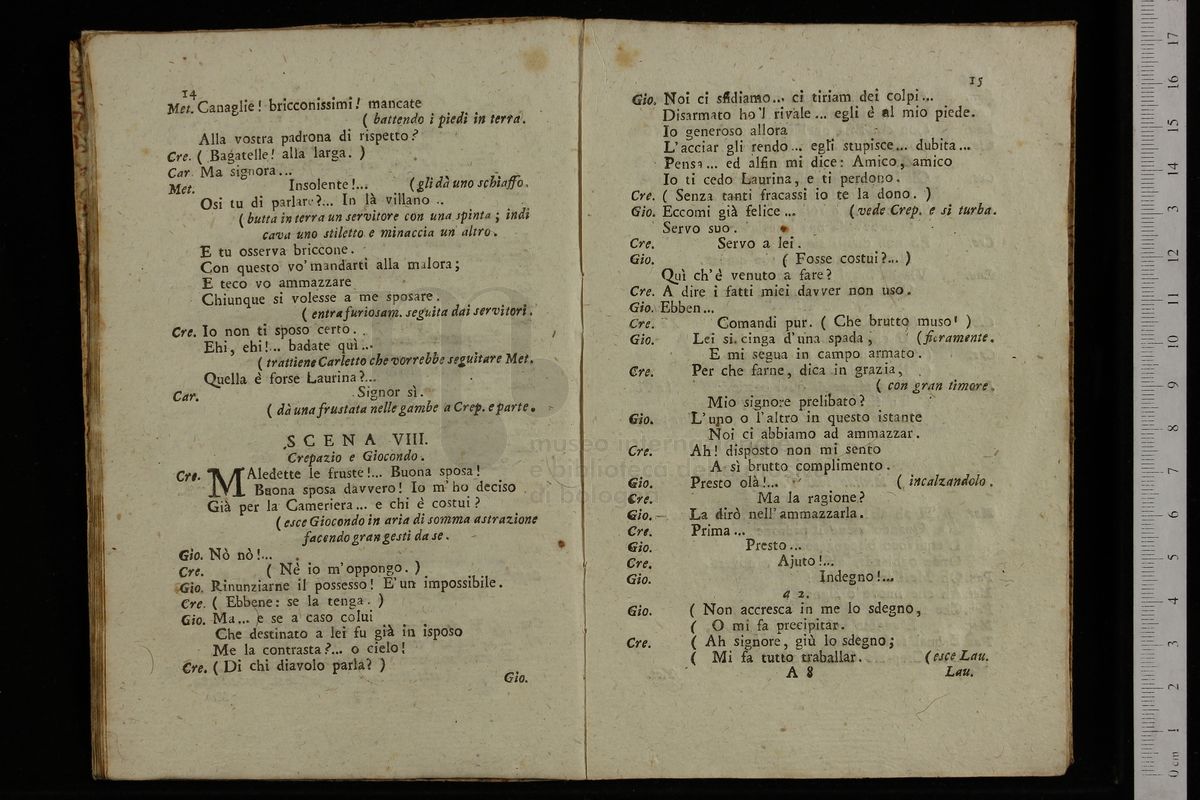 14
Met. Canaglie! bricconissimi! mancate
( battendo i piedi in terra.
Alla vostra padrona di rispetto?
Cre. ( Bagatelle! alla larga. )
Car. Ma signora...
Met. Insolente!... (gli dà uno schiaffo.
Osi tu di parlare?... In là villano ..
( butta in terra un servitore con una spinta ; indi
cava uno stiletto e minaccia un altro.
E tu osserva briccone.
Con questo vo' mandarti alla malora;
E teco vo ammazzare
Chiunque si volesse a me sposare.
( entra furiosam. seguita dai servitori.
Cre. Io non ti sposo certo.
Ehi, ehi!... badate quì...
( trattiene Carletto che vorrebbe seguitare Met.
Quella è forse Laurina?...
Car. Signor sì.
( dà una frustata nelle gambe a Crep. e parte.
SCENA VIII.
Crepazio e Giocondo.
Cre. MAledette le fruste!... Buona sposa!
Buona sposa davvero! Io m' ho deciso
Già per la Cameriera... e chi è costui?
( esce Giocondo in aria di somma astrazione
facendo gran gesti da se.
Gio. Nò nò!...
Cre. ( Nè io m' oppongo. )
Gio. Rinunziarne il possesso! E' un impossibile.
Cre. ( Ebbene: se la tenga. )
Gio. Ma... e se a caso colui
Che destinato a lei fu già in isposo
Me la contrasta?... o cielo!
Cre. ( Di chi diavolo parla? )
Gio.
15
Gio. Noi ci sfidiamo... ci tiriam dei colpi...
Disarmato ho 'l rivale... egli è al mio piede.
Io generoso allora
L' acciar gli rendo... egli stupisce... dubita...
Pensa... ed alfin mi dice: Amico, amico
Io ti cedo Laurina, e ti perdono.
Cre. ( Senza tanti fracassi io te la dono. )
Gio. Eccomi già felice... ( vede Crep. e si turba.
Servo suo.
Cre. Servo a lei.
Gio. ( Fosse costui?... )
Quì ch' è venuto a fare?
Cre. A dire i fatti miei davver non uso.
Gio. Ebben...
Cre. Comandi pur. ( Che brutto muso! )
Gio. Lei si cinga d' una spada, (fieramente.
E mi segua in campo armato.
Cre. Per che farne, dica in grazia,
( con gran timore.
Mio signore prelibato?
Gio. L' uno o l' altro in questo istante
Noi ci abbiamo ad ammazzar.
Cre. Ah! disposto non mi sento
A sì brutto complimento.
Gio. Presto olà!... ( incalzandolo.
Cre. Ma la ragione?
Gio. La dirò nell' ammazzarla.
Cre. Prima...
Gio. Presto...
Cre. Ajuto!...
Gio. Indegno!...
a 2.
Gio. ( Non accresca in me lo sdegno,
( O mi fa precipitar.
Cre. ( Ah signore, giù lo sdegno;
( Mi fa tutto traballar. (esce Lau.
A 8 Lau.
museo internazionale
e biblioteca della
di bologna